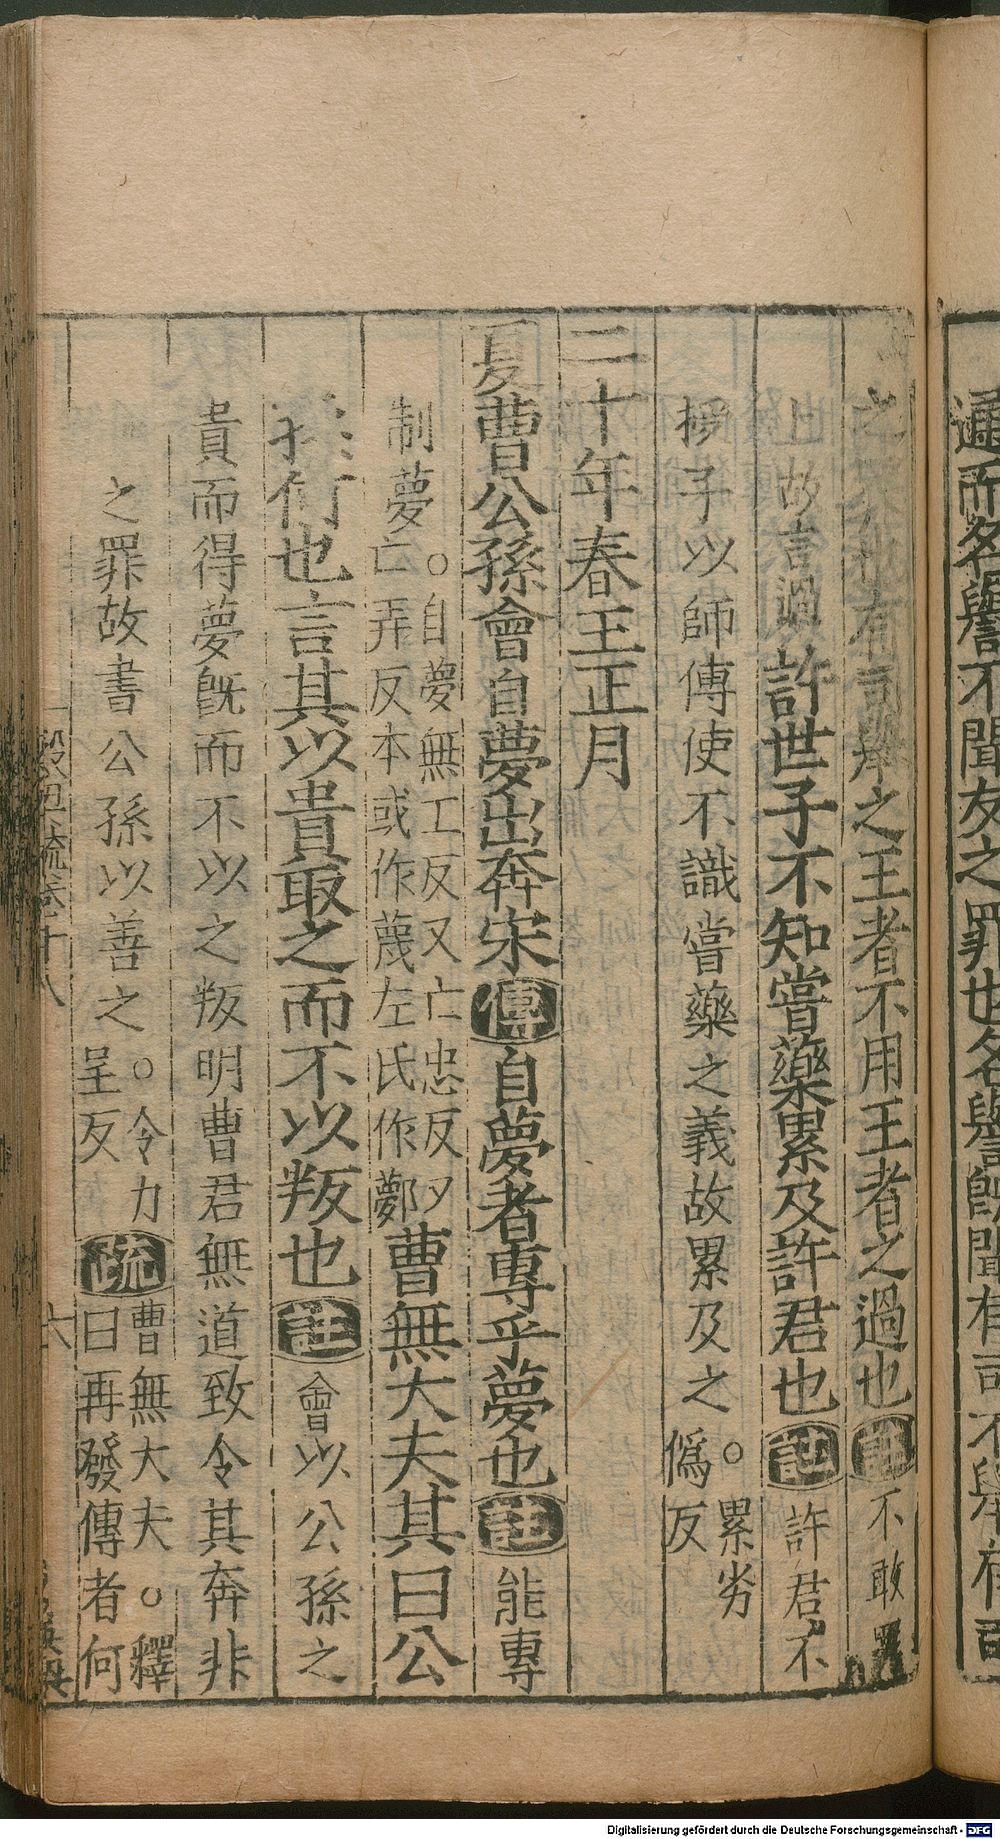 通而名譽不聞友之罪也名譽既聞有司不舉有司
有司舉之王者不用王者之過也註不敢
上故言過許世子不知嘗藥累及許君也註許君不
授子以師傅使不識嘗藥之義故累及之○累劣
僞反
二十年春王正月
夏曹公孫會自夢出奔宋傳自夢者專乎夢也註能專
制夢○自夢無工反又亡忠反夕
亡弄反本或作蔑左氏作鄸曹無大夫其曰公
孫何也言其以貴取之而不以叛也註會以公孫之
貴而得夢既而不以之叛明曹君無道致令其奔非
之罪故書公孫以善之○令力
呈反疏曹無大夫○釋
曰再發傳者何
六
Digitalisierung gefördert durch die Deutsche Forschungsgemeinschaft - DFG